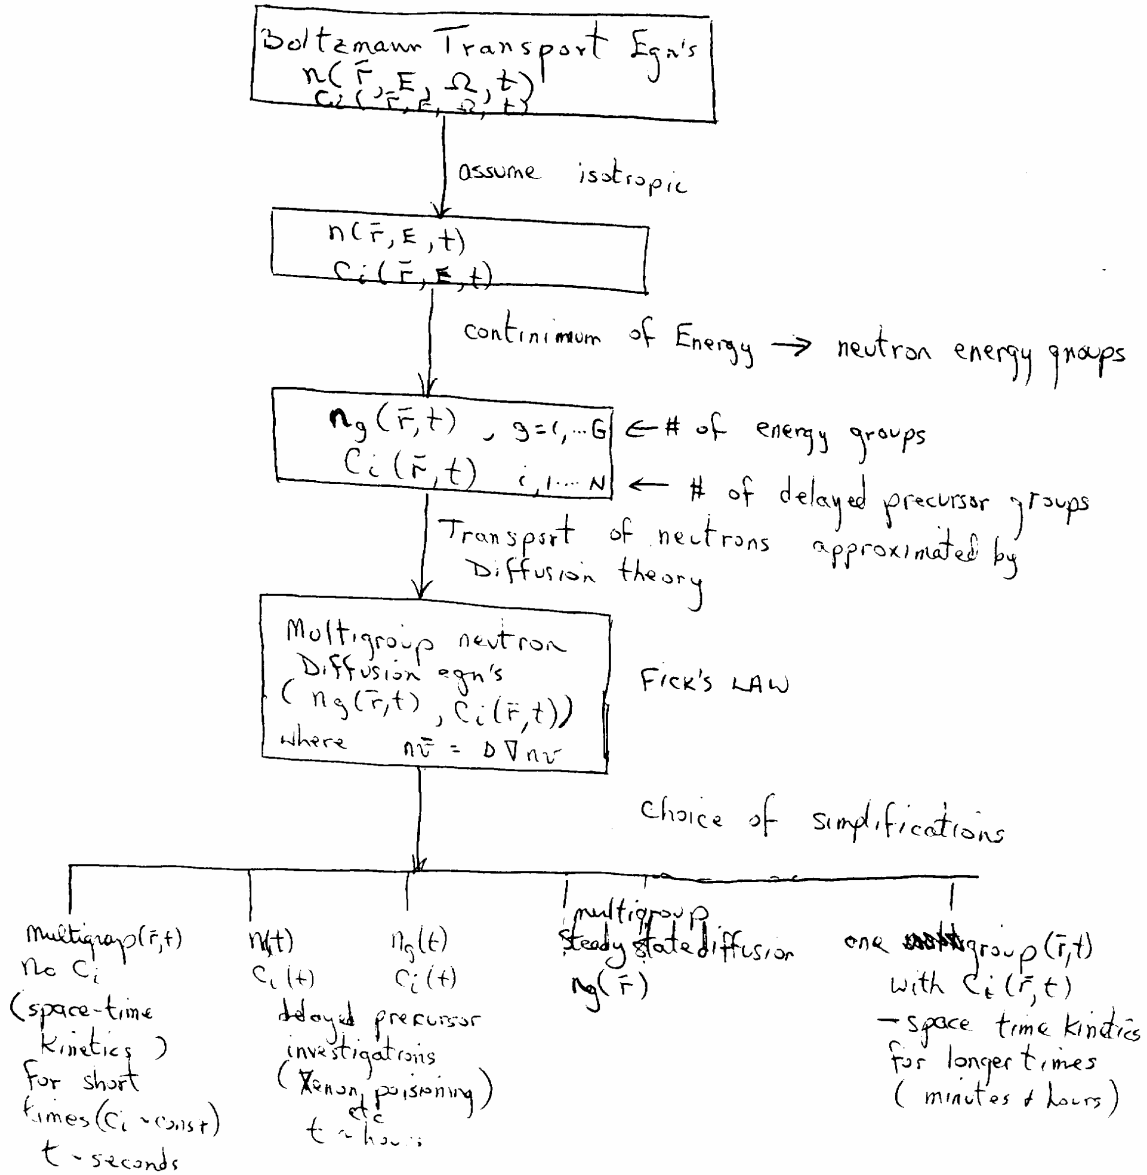 Boltzmann Transport Eqn's
n(r̄, E, Ω, t)
Ci(r̄, E, Ω, t)
assume isotropic
n(r̄, E, t)
Ci(r̄, E, t)
continimum of Energy → neutron energy groups
ng(r̄, t) , g=1, ... G ← # of energy groups
Ci(r̄, t) i, 1 .... N ← # of delayed precursor groups
Transport of neutrons approximated by
Diffusion theory
Multigroup neutron
Diffusion eqn's
(ng(r̄,t), Ci(r̄,t))
where nv̄ = D∇nv
Fick's LAW
Choice of simplifications
multigroup(r̄,t)
no Ci
(space-time
kinetics)
for short
times (Ci ~ const)
t ~ seconds
n(t)
Ci(t)
ng(t)
Ci(t)
delayed precursor
investigations
(Xenon poisoning)
etc
t ~ hours
multigroup
steady state diffusion
ng(r̄)
one group(r̄,t)
with Ci(r̄,t)
- space time kinetics
for longer times
(minutes & hours)